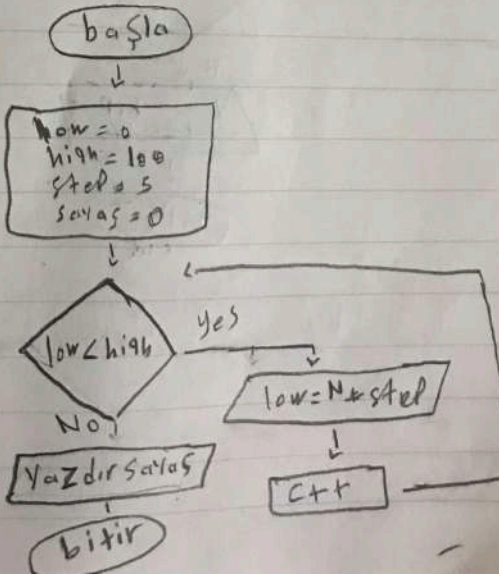 başla
low = 0
high = 100
step = 5
sayaş = 0
low < high
yes
low = N + step
NO
C++
Yazdır sayaş
bitir